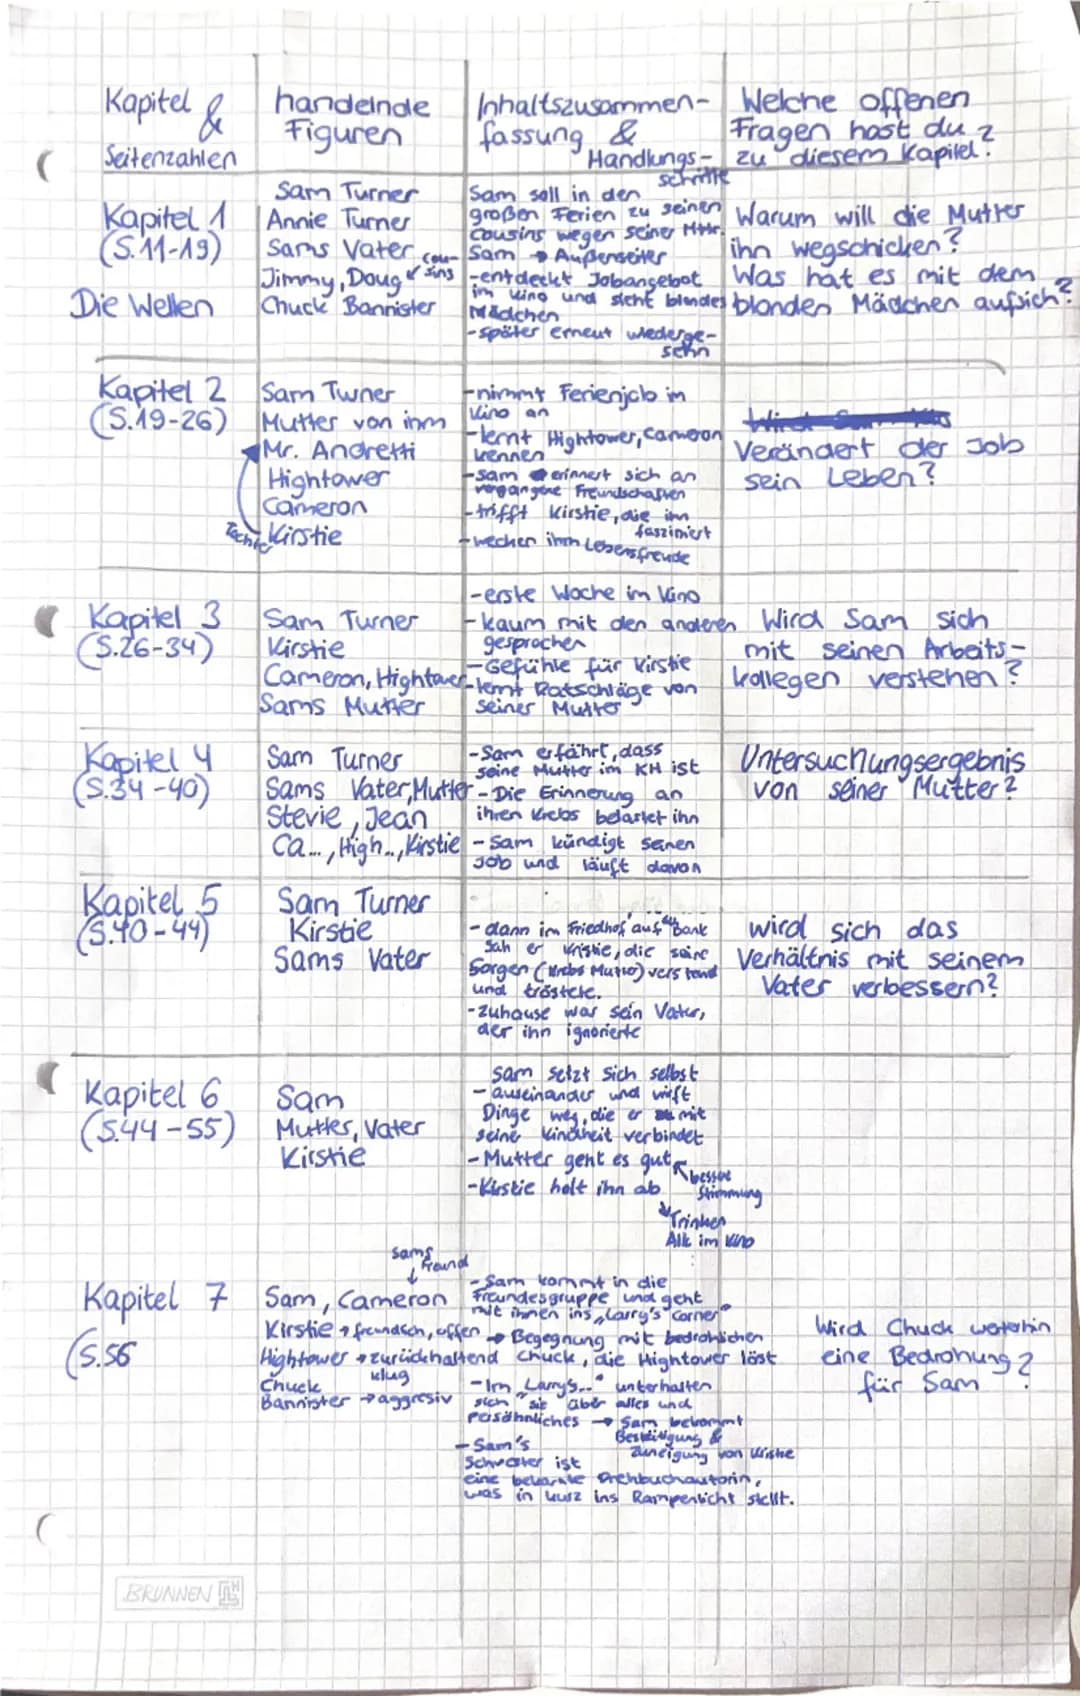 Kapitel &
Seitenzahlen
handelnde
Figuren
Inhaltszusammen-
fassung &
Handlungs-
schritte
Welche offenen
Fragen hast du
zu diesem Kapitel?
Kapitel 1
(S.11-19)
Die Wellen
Sam Turner
Annie Turner
Sams Vater
Jimmy, Doug
cou-
sins
Chuck Bannister
Sam soll in den
großen Ferien zu seinen
Cousins wegen seiner Mttr.
Sam → Außenseiter
-entdeckt Jobangebot
im Kino und sieht blondes
Mädchen
-später erneut wiederge-
sehn
Warum will die Mutter
ihn wegschicken?
Was hat es mit dem
blonden Mädchen aufsich?
Kapitel 2
(S.19-26)
Sam Turner
Mutter von ihm
Mr. Andretti
Hightower
Cameron
Kirstie
-nimmt Ferienjob im
Kino an
-lernt Hightower, Cameron
kennen
-Sam erinnert sich an
vergangene Freundschaften
-trifft Kirstie, die ihn
fasziniert
-wecken ihm Lebensfreude
Verändert der Job
sein Leben?
Kapitel 3
(S.26-34)
Sam Turner
Kirstie
Cameron, Hightower
Sams Mutter
-erste Woche im Kino
-kaum mit den anderen
gesprochen
-Gefühle für Kirstie
-lernt Ratschläge von
seiner Mutter
Wird Sam sich
mit seinen Arbeits-
kollegen verstehen?
Kapitel 4
(S.34-40)
Sam Turner
Sams Vater, Mutter
Stevie, Jean
Ca..., High..., Kirstie
-Sam erfährt, dass
seine Mutter im KH ist
-Die Erinnerung an
ihren Krebs belastet ihn
-Sam kündigt seinen
Job und läuft davon
Untersuchungsergebnis
von seiner Mutter?
Kapitel 5
(S.40-44)
Sam Turner
Kirstie
Sams Vater
-dann im Friedhof auf Bank
sah er Kristie, die seine
Sorgen (Krebs Mutter) verstand
und tröstete.
-zuhause war sein Vater,
der ihn ignorierte
wird sich das
Verhältnis mit seinem
Vater verbessern?
Kapitel 6
(S.44-55)
Sam
Mutter, Vater
Kirstie
Sam setzt sich selbst
-auseinander und wirft
Dinge weg, die er mit
seiner Kindheit verbindet
-Mutter geht es gut
bessere
Stimmung
-Kirstie holt ihn ab
Trinken
Alk im Kino
Kapitel 7
(S.56
Sams
Freund
Sam, Cameron
Kirstie → freundlich, offen
Hightower → zurückhaltend
klug
Chuck
Bannister → aggresiv
-Sam kommt in die
Freundesgruppe und geht
mit ihnen ins „Larry's Corner"
→ Begegnung mit bedrohlichen
Chuck, die Hightower löst
-Im „Larry's.." unterhalten
sich sie über alles und
Persöhnliches → Sam bekommt
Bestätigung &
Zuneigung von Kirstie
-Sam's
Schwester ist
eine bekannte Drehbuchautorin,
was in kurz ins Rampenlicht stellt.
Wird Chuck weiterhin
eine Bedrohung
für Sam?
BRUNNEN